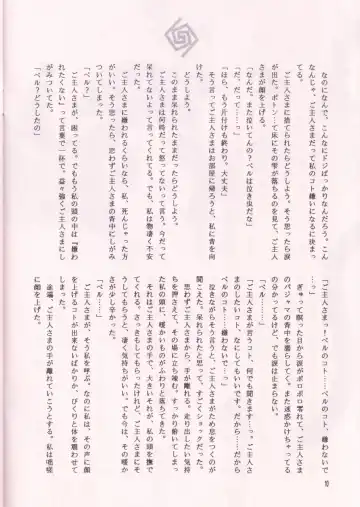 なのになんで、こんなにドジばっかりなんだろう。こん
なんじゃ、ご主人さまだって私のコト嫌いになるに決まっ
ご主人さまに捨てられたらどうしよう。そう思ったら涙
が出た。ポトン…って床にその雫が落ちるのを見て、ご主人
さまが顔を上げる。
「なんだ、また泣いてんの？ベルは泣き虫だな」
「だ、だって……っ」
「ほら、もう片付けも終わり。大丈夫」
そう言ってご主人さまはお部屋に帰ろうと、私に背を向
けた。
どうしよう。
このまま呆れられたままだったらどうしよう。
ご主人さまは何時だって怒ってないって言う。今だって
呆れてないよって言ってくれた。でも、私は物凄く不安
だった。
ご主人さまに嫌われるくらいなら、私、死んじゃった方
がいい。そう思ったら、思わずご主人さまの背中にしがみ
ついてしまった。
「ベル？」
ご主人さまが、困ってる。でももう私の頭の中は『嫌わ
れたくない』って言葉で一杯で、益々強くご主人さまにし
がみついてた。
「ベル？どうしたの」
「ご主人さまっ！ベルのコト……ベルのコト、嫌わないで
…っ」
ぎゅって瞑った目から涙がポロポロ零れて、ご主人さま
のパジャマの背中を濡らしてく。また迷惑かけちゃってる
の分かってるけど、でも涙は止まらない。
「ベル……」
「ご主人さまが言うコト、何でも聞きます…っ。ご主人さ
まのしたいコト、なにしてもいいです、だから……だから
ベルのコト嫌わないで…っ」
泣きながらそう言うと、ご主人さまがため息をつくのが
聞こえた。呆れられたと思って、すごくショックだった。
思わずご主人さまから、手が離れる。走り出したい気持
ちを押さえて、その場に立ち竦む。すっかり俯いてしまっ
た私の頭に、暖かいものがふわりと落ちてきた。
それはご主人さまの手で、大きいそれが、私の頭を撫で
てくれる。さっきもしてもらったけれど、ご主人さまにそ
うしてもらうと、凄く気持ちがいい。でも、今は、その暖か
さが少し辛かった。
「ベル……」
ご主人さまが、そう私を呼ぶ。なのに私は、その声に顔
を上げるコトが出来ないばかりか、びくりと体を震わせて
しまった。
途端、ご主人さまの手が離れていこうとする。私は咄嗟
に顔を上げた。
10